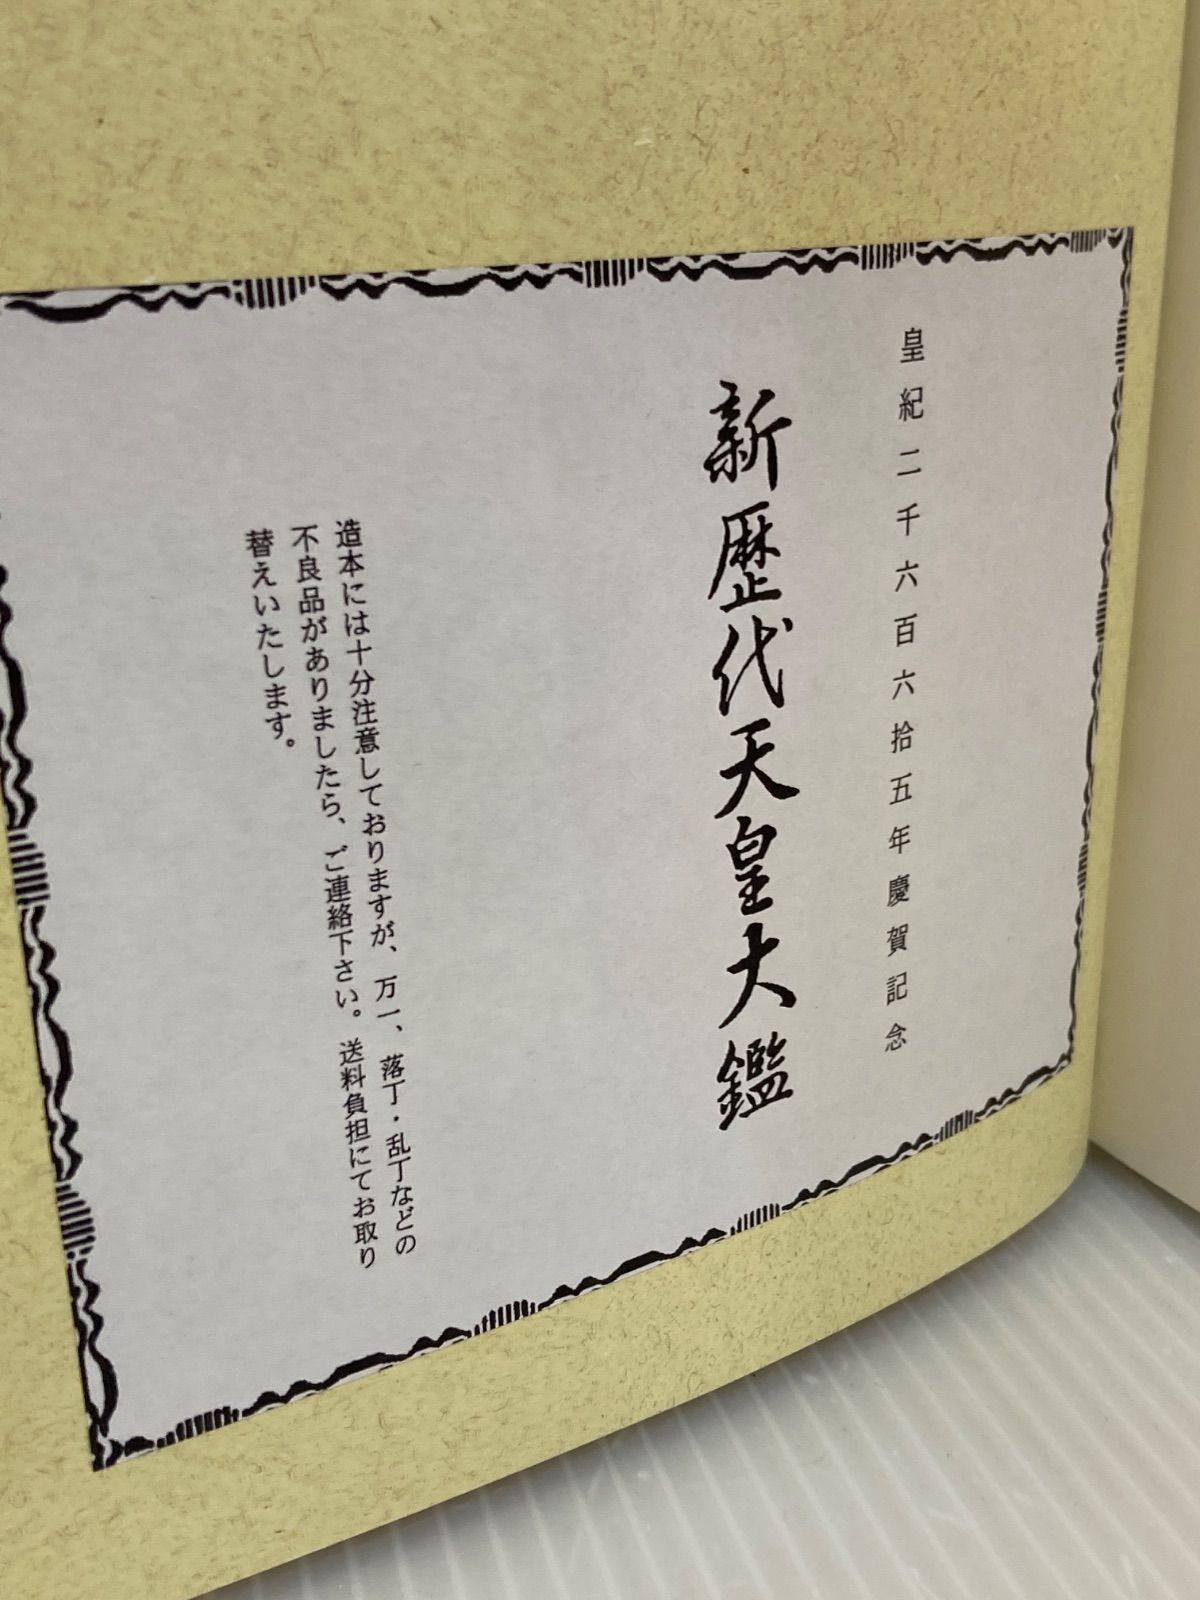 皇紀二千六百六拾五年慶賀記念
新歴代天皇大鑑
造本には十分注意しておりますが、万一、落丁・乱丁などの
不良品がありましたら、ご連絡下さい。送料負担にてお取り
替えいたします。